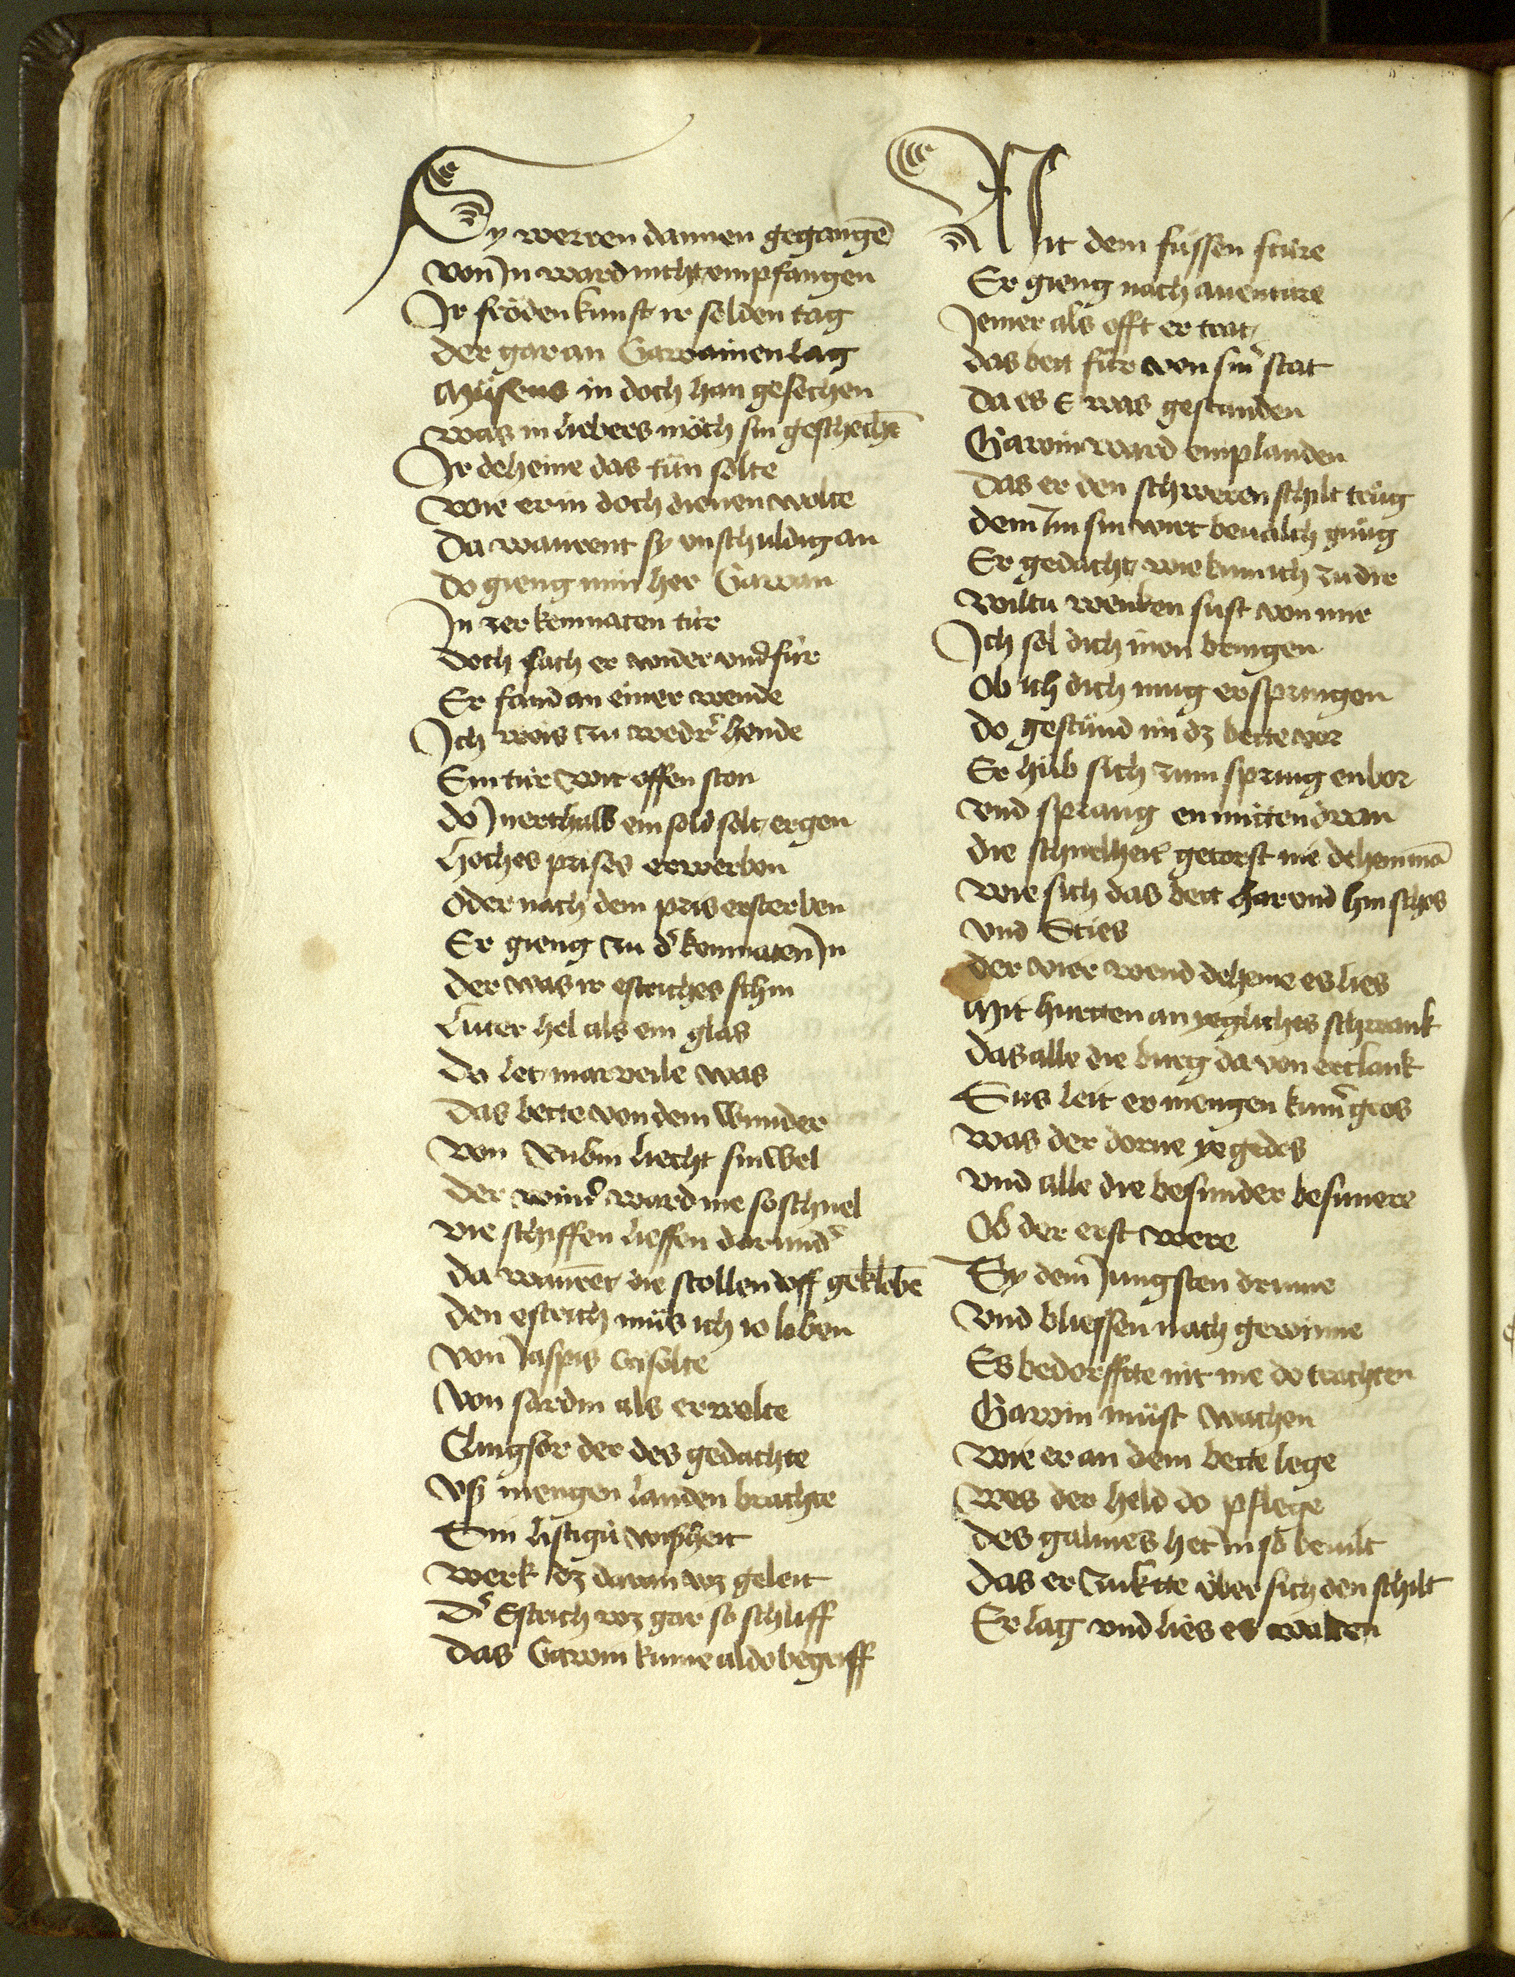 Sy werren dannen gegangē
von Jn ward nicht empfangen
Jr fröden kunst ir selden tag
der gar an Gawainen lag
Müsens in doch han gesechen
was in liebers möch sin geschechē
Jr deheine das tůn solte
wie er in doch dienen wolte
Da waurent sy vnschuldig an
do gieng min her Gawan
Jn zer kemnaten tür
doch sach er wider vnd für
Er fand an einer wende
Jch wais zu wedr̄ hende
Ein tür wit offen ston
do Jnerthalb ein sold solt ergen
Hoches prises erwerben
Oder nach dem pris ersterben
Er gieng zu d' kemnaten Jn
der was ir estriches schin
Luter hel als ein glas
Do let marveile was
Das bette von dem Wunder
von Rubin liecht sinwel
Der wind' ward nie so schnel
vie schiffen lieffen darund'
Da waurēt die stollen vff geklebē
den estrich můs ich io loben
von Jaspis Crisolte
von sardin als er wolte
Clingsor der des gedachte
vß mengen landen brachte
Sin listigü wißheit
werk dz daran wz geleit
D' Estrich wz gar so schliff
Das Gawin kume aldo begriff
Mit dem füssen stüre
Er gieng nach auentüre
Jemer als offt er trat
das bett für von sin' stat
Da es E was gestanden
Gawin ward emplanden
Das er den schweren schilt trůg
dem Im sin wirt beualch gnůg
Er gedacht wie kum ich zu dir
Wiltu wenken sust von mir
Jch sol dich inen bringen
Ob ich dich mug erspringen
do gestůnd im dz bette vor
Er hůb sich zum sprung enbor
vnd sprang enmitten dran
die schnelheit getorst nie dehein mā
wie sich das bett har vnd hin schos
vnd Sties
der vier wend deheine es lies
Mit hurtten an yegliches schwank
Das alle die burg da von erclank
Sus leit er mengen kum' gros
was der dorne ye gedos
vnd alle die besunder besunere
Ob der erst were
By dem Jungsten drinne
vnd bliessen nach gewinne
Es bedorfftte nit me do trachten
Gawin můst wachen
wie er an dem bette lege
wes der held do pflege
des galmes het in so beuilt
Das er zuktte über sich den schilt
Er lag vnd lies es walten